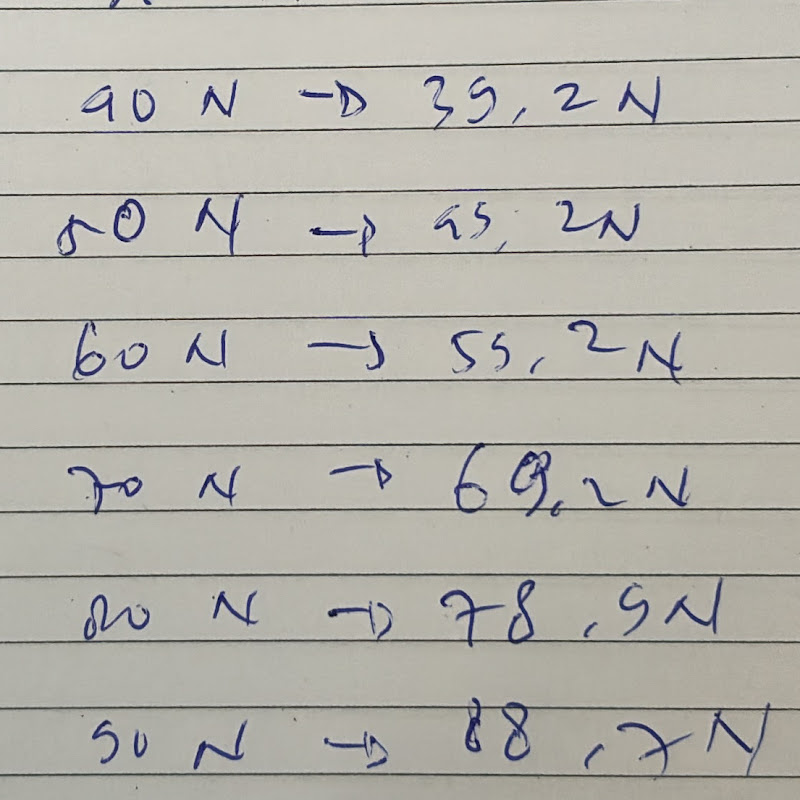 40 N → 39,2 N
50 N → 49,2 N
60 N → 59,2 N
70 N → 69,2 N
80 N → 78,9 N
90 N → 88,7 N